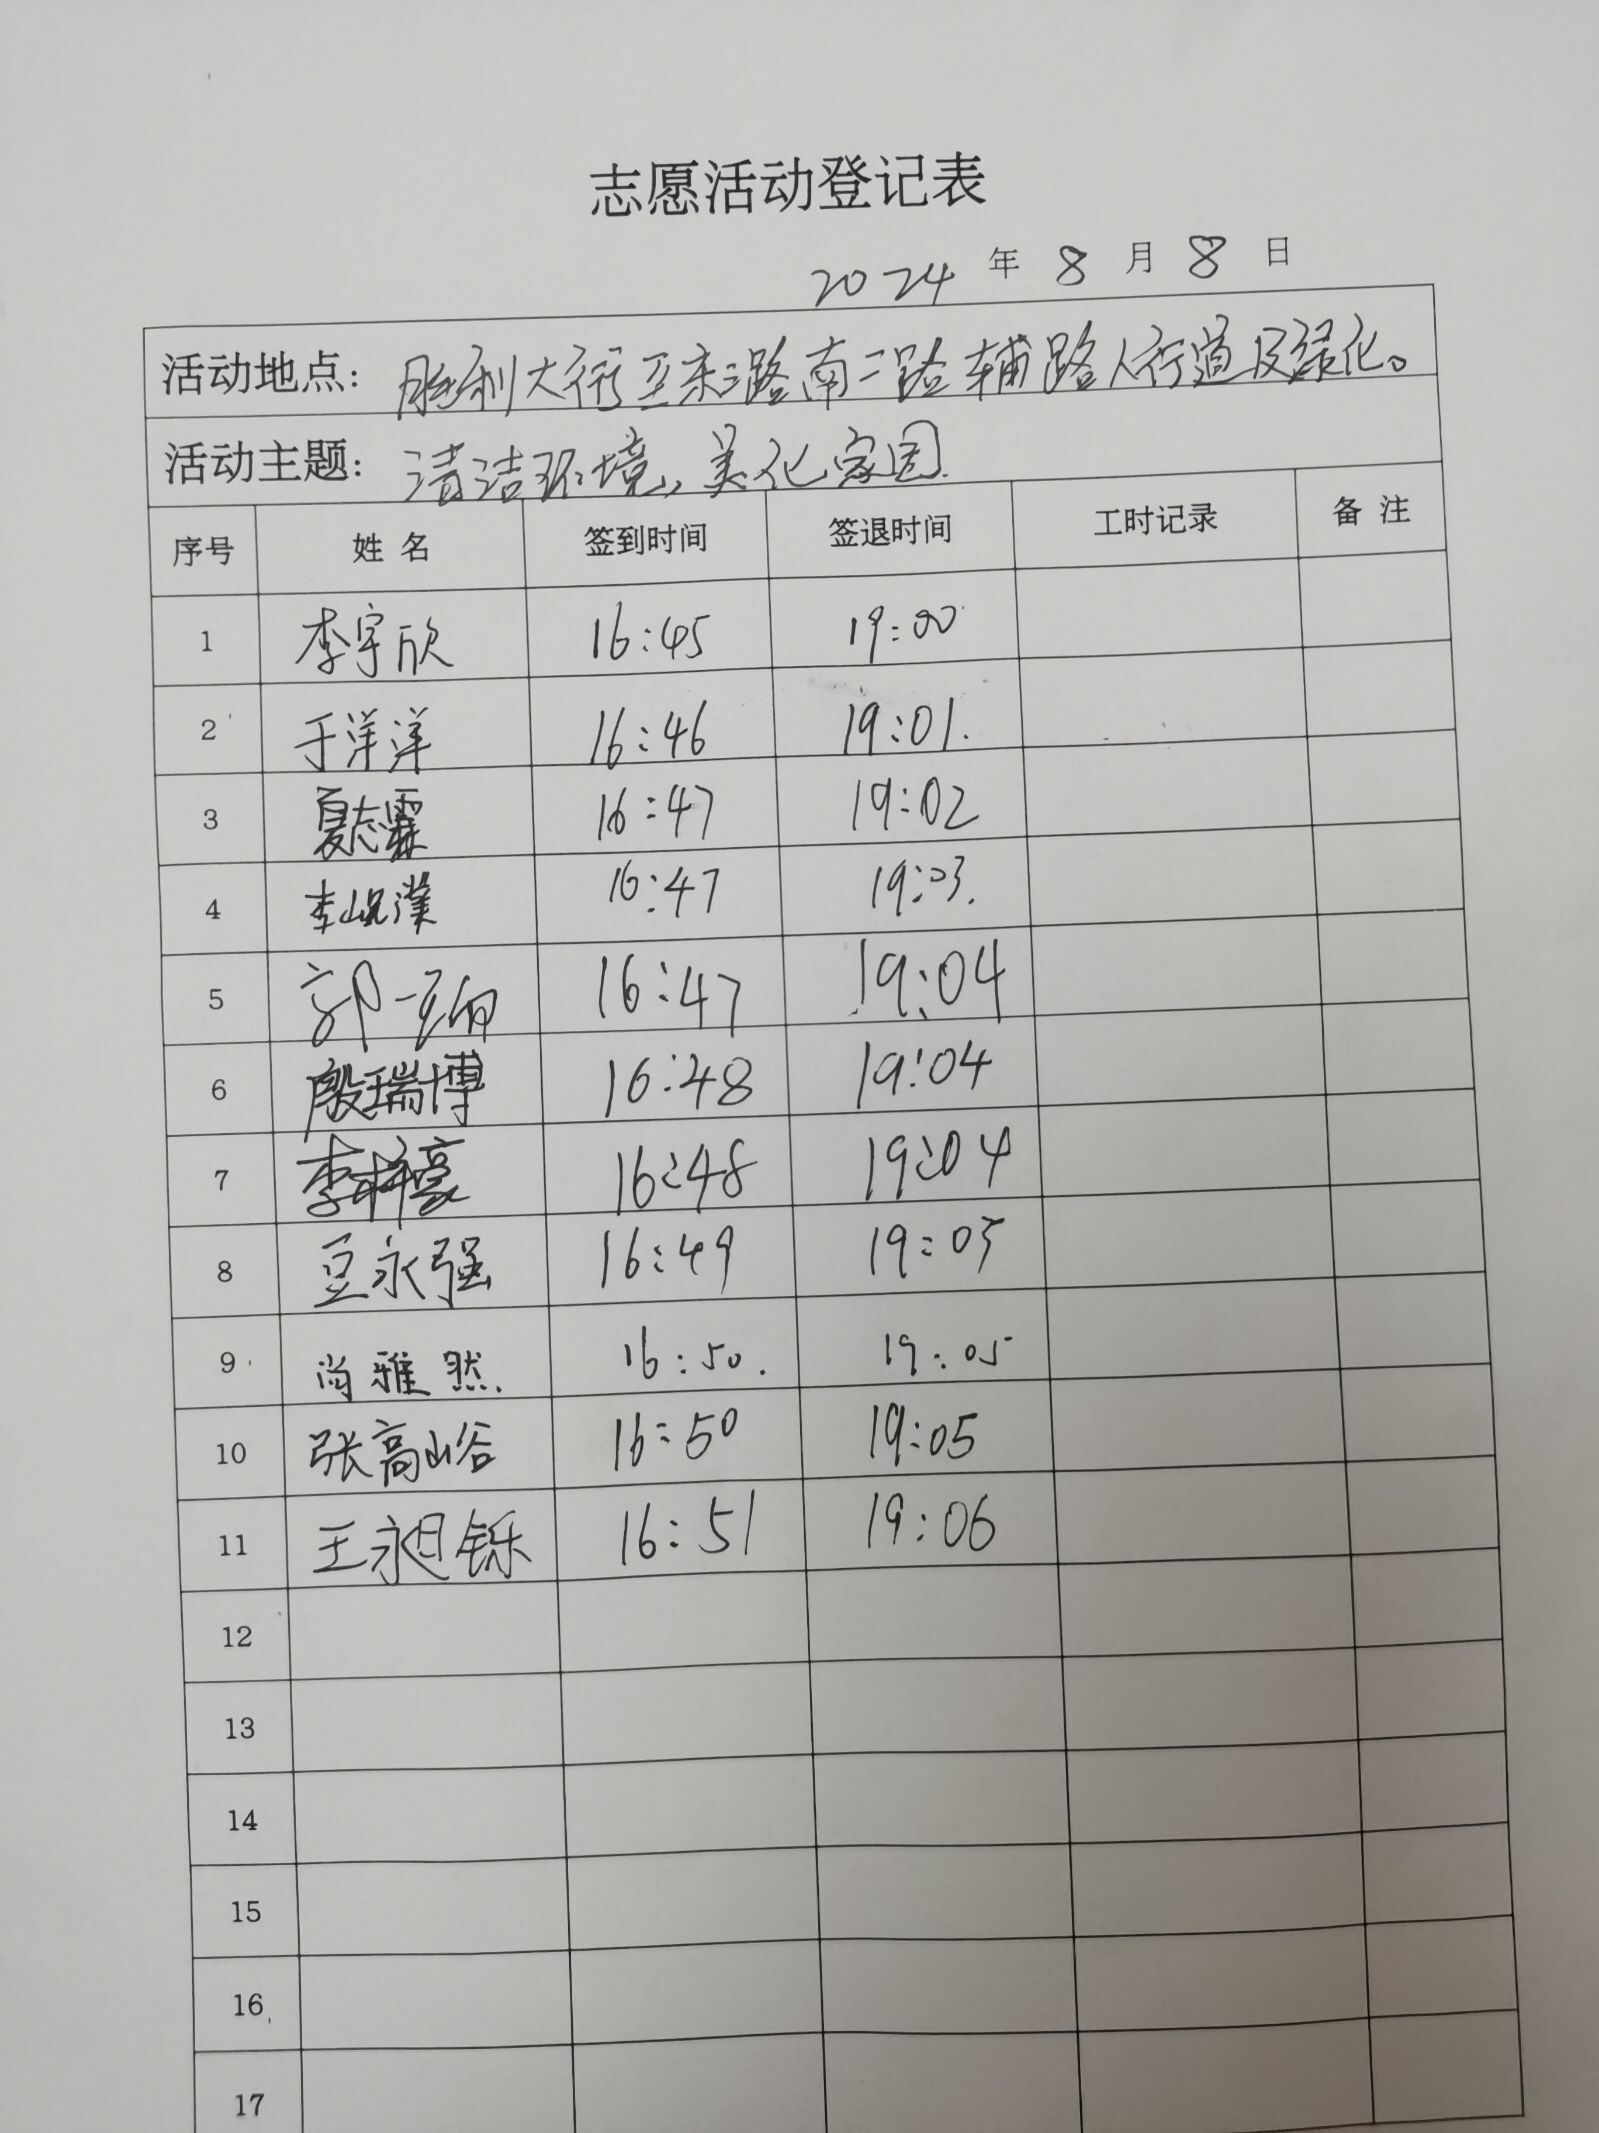 志愿活动登记表
2024 年 8 月 8 日
活动地点: 胜利大街至东二路南二路辅路人行道及绿化。
活动主题: 清洁环境,美化家园.
序号 姓 名 签到时间 签退时间 工时记录 备 注
1 李宇欣 16:45 19:00
2 于洋洋 16:46 19:01.
3 夏志霖 16:47 19:02
4 李岘濮 16:47 19:03.
5 郭一 16:47 19:04
6 殷瑞博 16:48 19:04
7 李梓豪 16:48 19:04
8 豆永强 16:49 19:05
9 尚雅然. 16:50. 19:05
10 张高峪 16:50 19:05
11 王昶铄 16:51 19:06
12
13
14
15
16
17